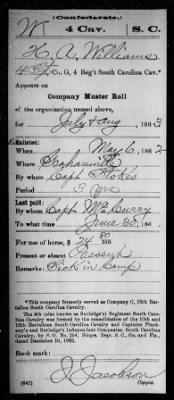 (Confederate.)
W 4 Cav. S. C.
H. A. Williams
4 Sgt, Co. G, 4 Reg't South Carolina Cav.*
Appears on
Company Muster Roll
of the organization named above,
for July & Aug, 1863
Enlisted:
When May 6, 1862
Where
By whom Capt Stokes
Period 3 yrs
Last paid:
By whom Capt
To what time June 30, 186
For use of horse, $ 24 80/100
Present or absent Present
Remarks: Sick in Camp
*This company formerly served as Company C, 10th Battalion South Carolina Cavalry.
The 4th (also known as Rutledge's) Regiment South Carolina Cavalry was formed by the consolidation of the 10th and
12th Battalions South Carolina Cavalry and Captains Pinckney's and Rutledge's Independent Companies South Carolina
Cavalry, by S. O. No. 254, Hdqrs. Dept. S. C., Ga. and Fla.,
dated December 16, 1862.
Book mark:
(642) J. Jacobson
Copyist.